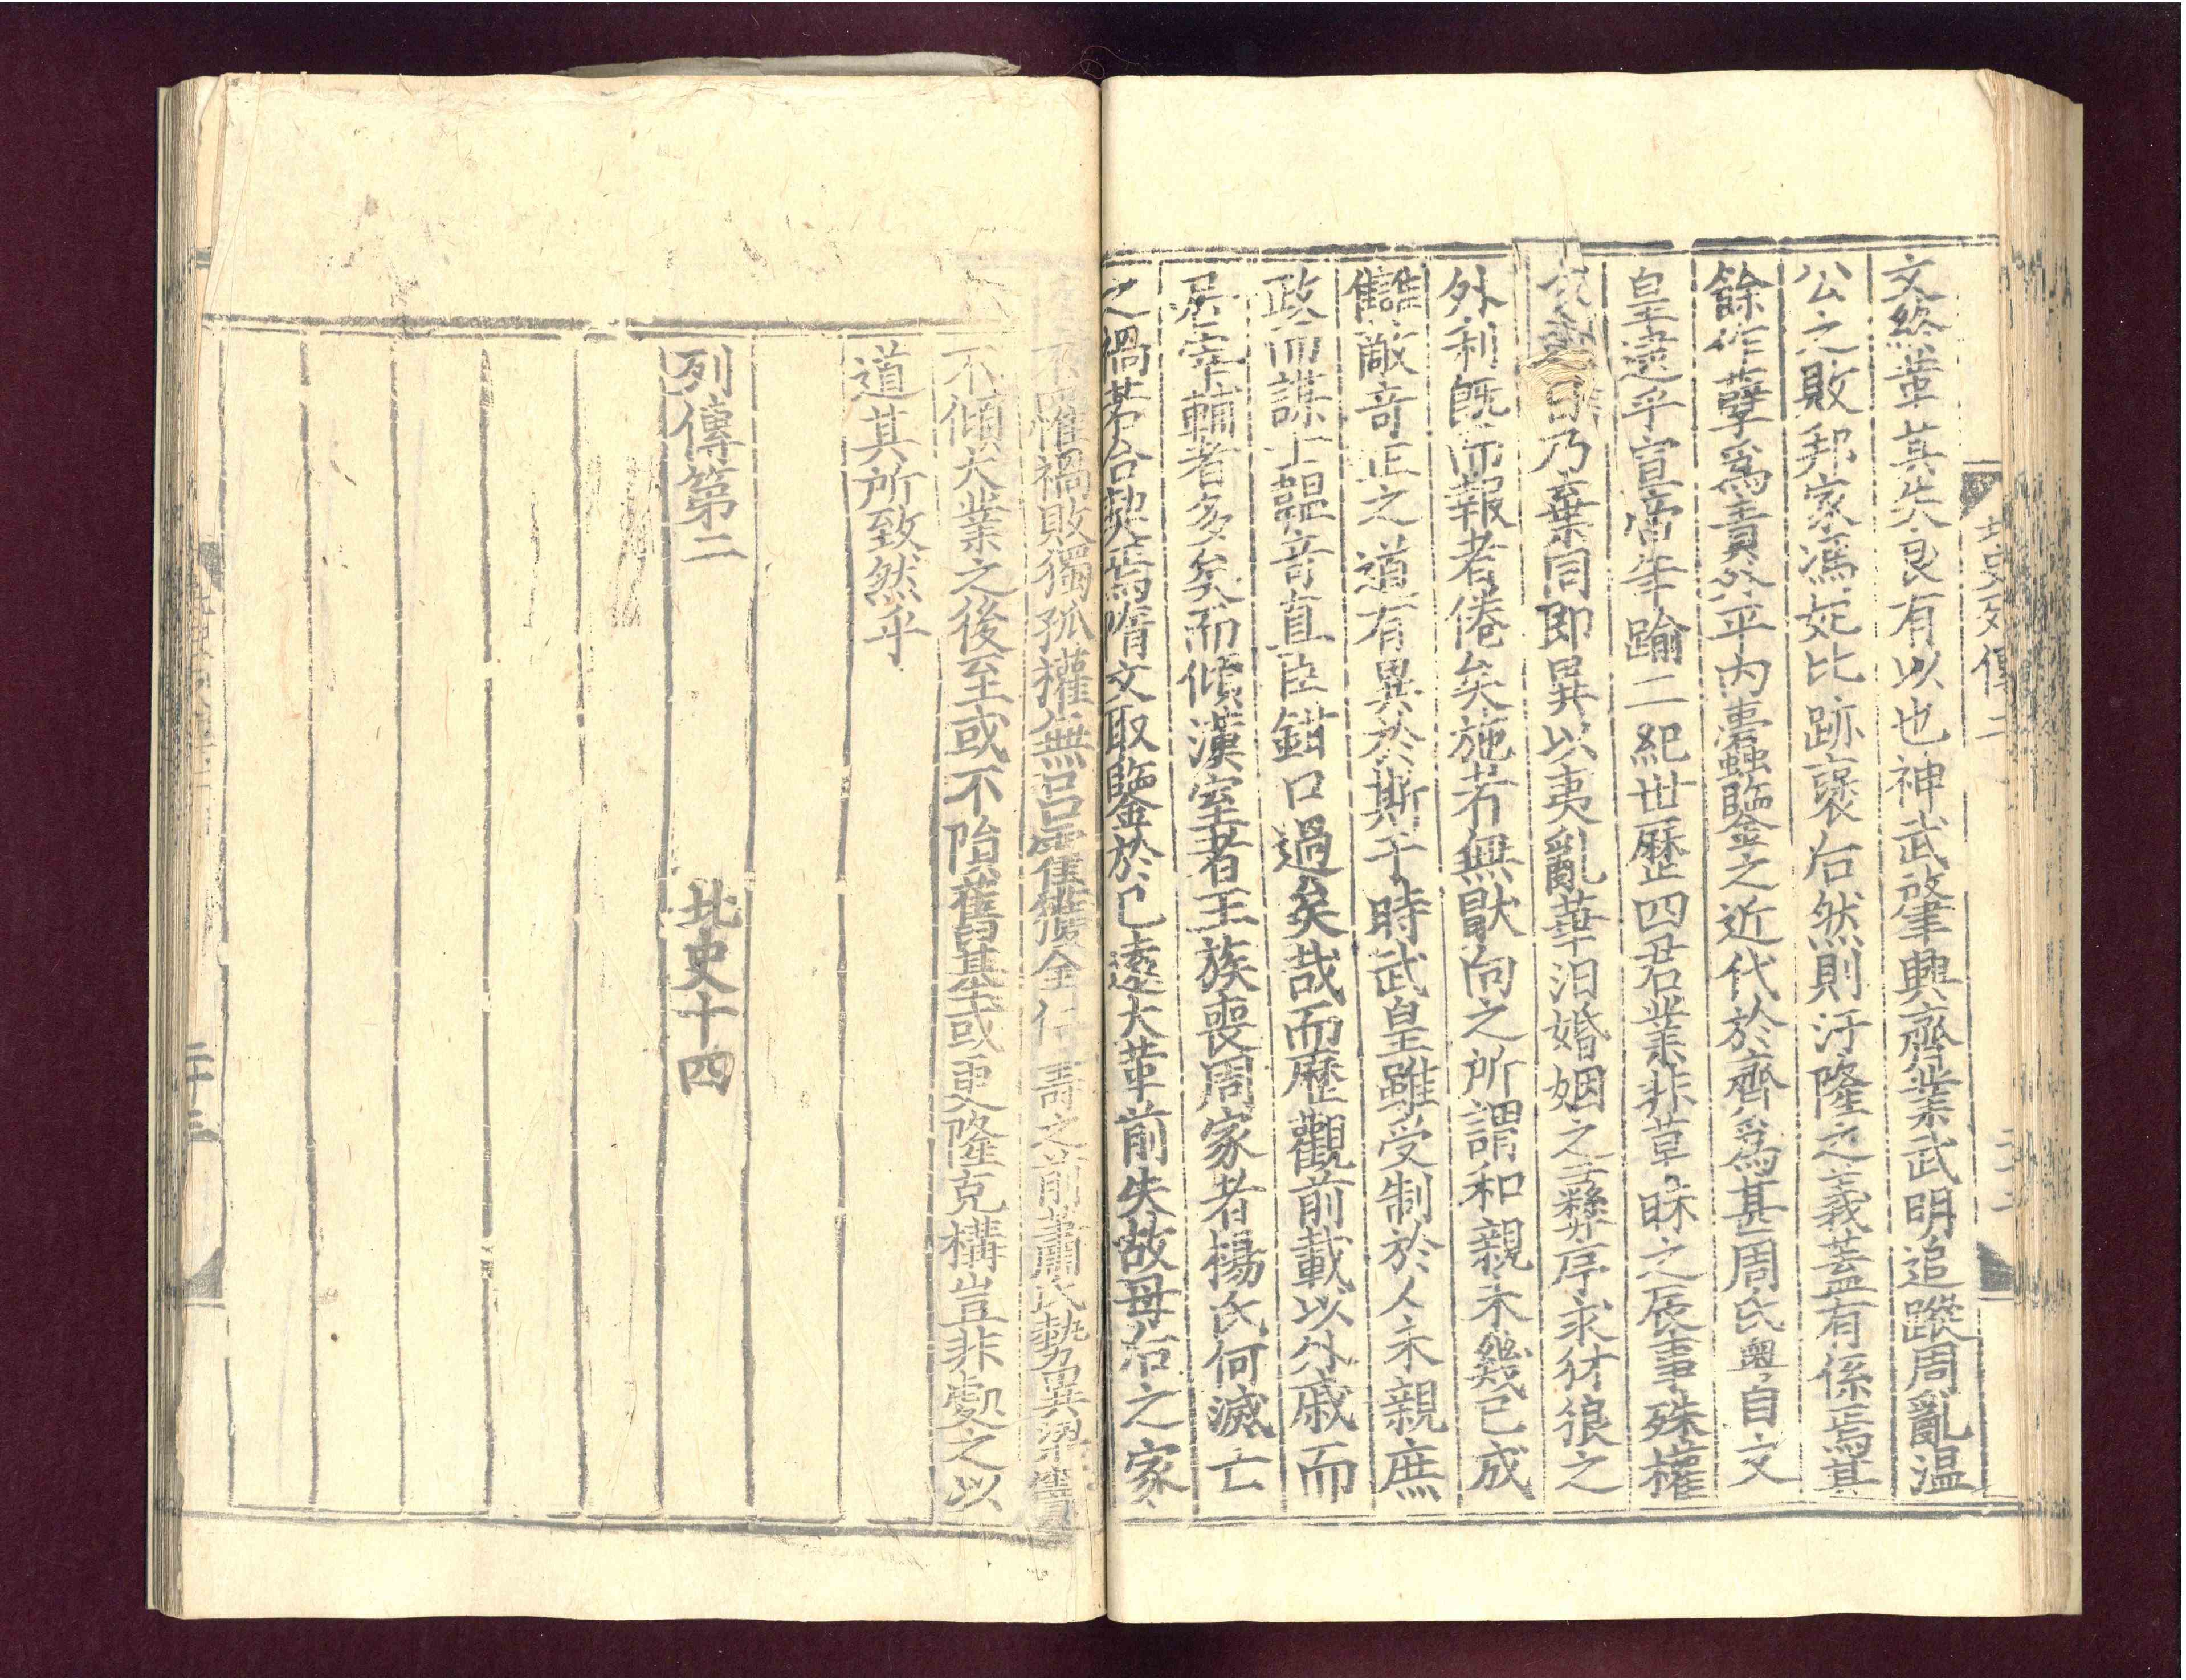 文終革其失良有以也神武肇興齊業武明追蹤周亂温
公之敗邦家馮妃比跡襃后然則汙隆之義蓋有係焉其
餘作孽爲責外平内蠹鑒之近代於齊爲甚周氏粤自文
皇逮乎宣帝年踰二紀世歷四君業非草昧之辰事殊權
乃棄同即異以夷亂華汨婚姻之彝序求豺狼之
外利旣而報者倦矣施者無猒向之所謂和親未幾已成
讎敵奇正之道有異於斯于時武皇雖受制於人未親庶
政而謀士韞奇直臣鉗口過矣哉而歷觀前載以外戚而
居宰輔者多矣而傾漢室者王族喪周家者楊氏何滅亡
之禍若合契焉隋文取鑒於已遠大革前失故母后之家
不罹禍敗獨孤權無吕霍獲全仁壽之前蕭氏勢異梁竇
不傾大業之後至或不隕舊基或更隆克構豈非處之以
道其所致然乎
列傳第二 北史十四
北史列傳二
二十三